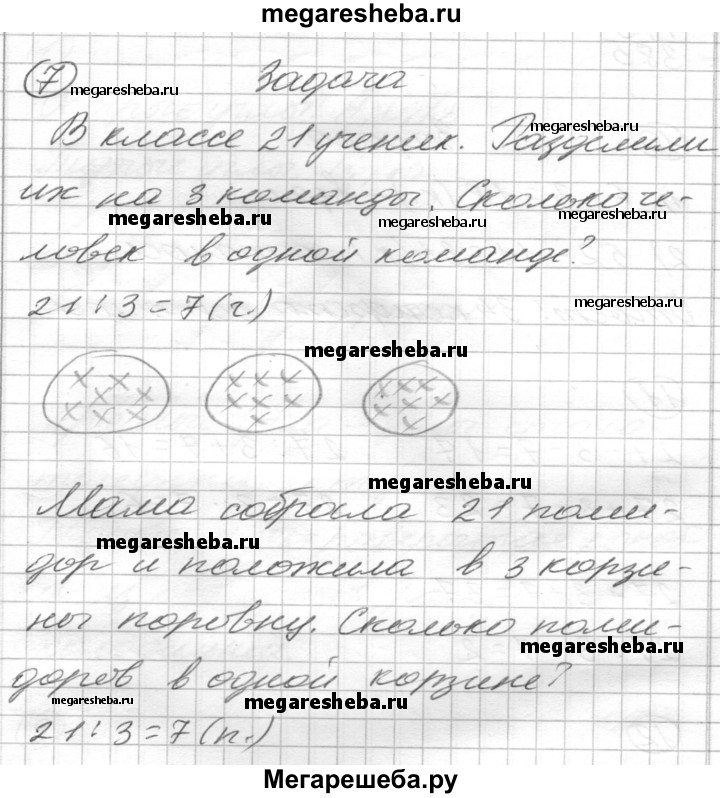 megaresheba.ru
7 megaresheba.ru Задача
В классе 21 ученик. Разделили megaresheba.ru
их на 3 команды. Сколько че-
megaresheba.ru megaresheba.ru megaresheba.ru
ловек в одной команде?
21 : 3 = 7 (ч.) megaresheba.ru
megaresheba.ru
Мама собрала 21 поми-
megaresheba.ru
megaresheba.ru
дор и положила в 3 корзи-
ны поровну. Сколько поми-
megaresheba.ru
доров в одной корзине?
megaresheba.ru megaresheba.ru megaresheba.ru
21 : 3 = 7 (п.)
Мегарешеба.ру